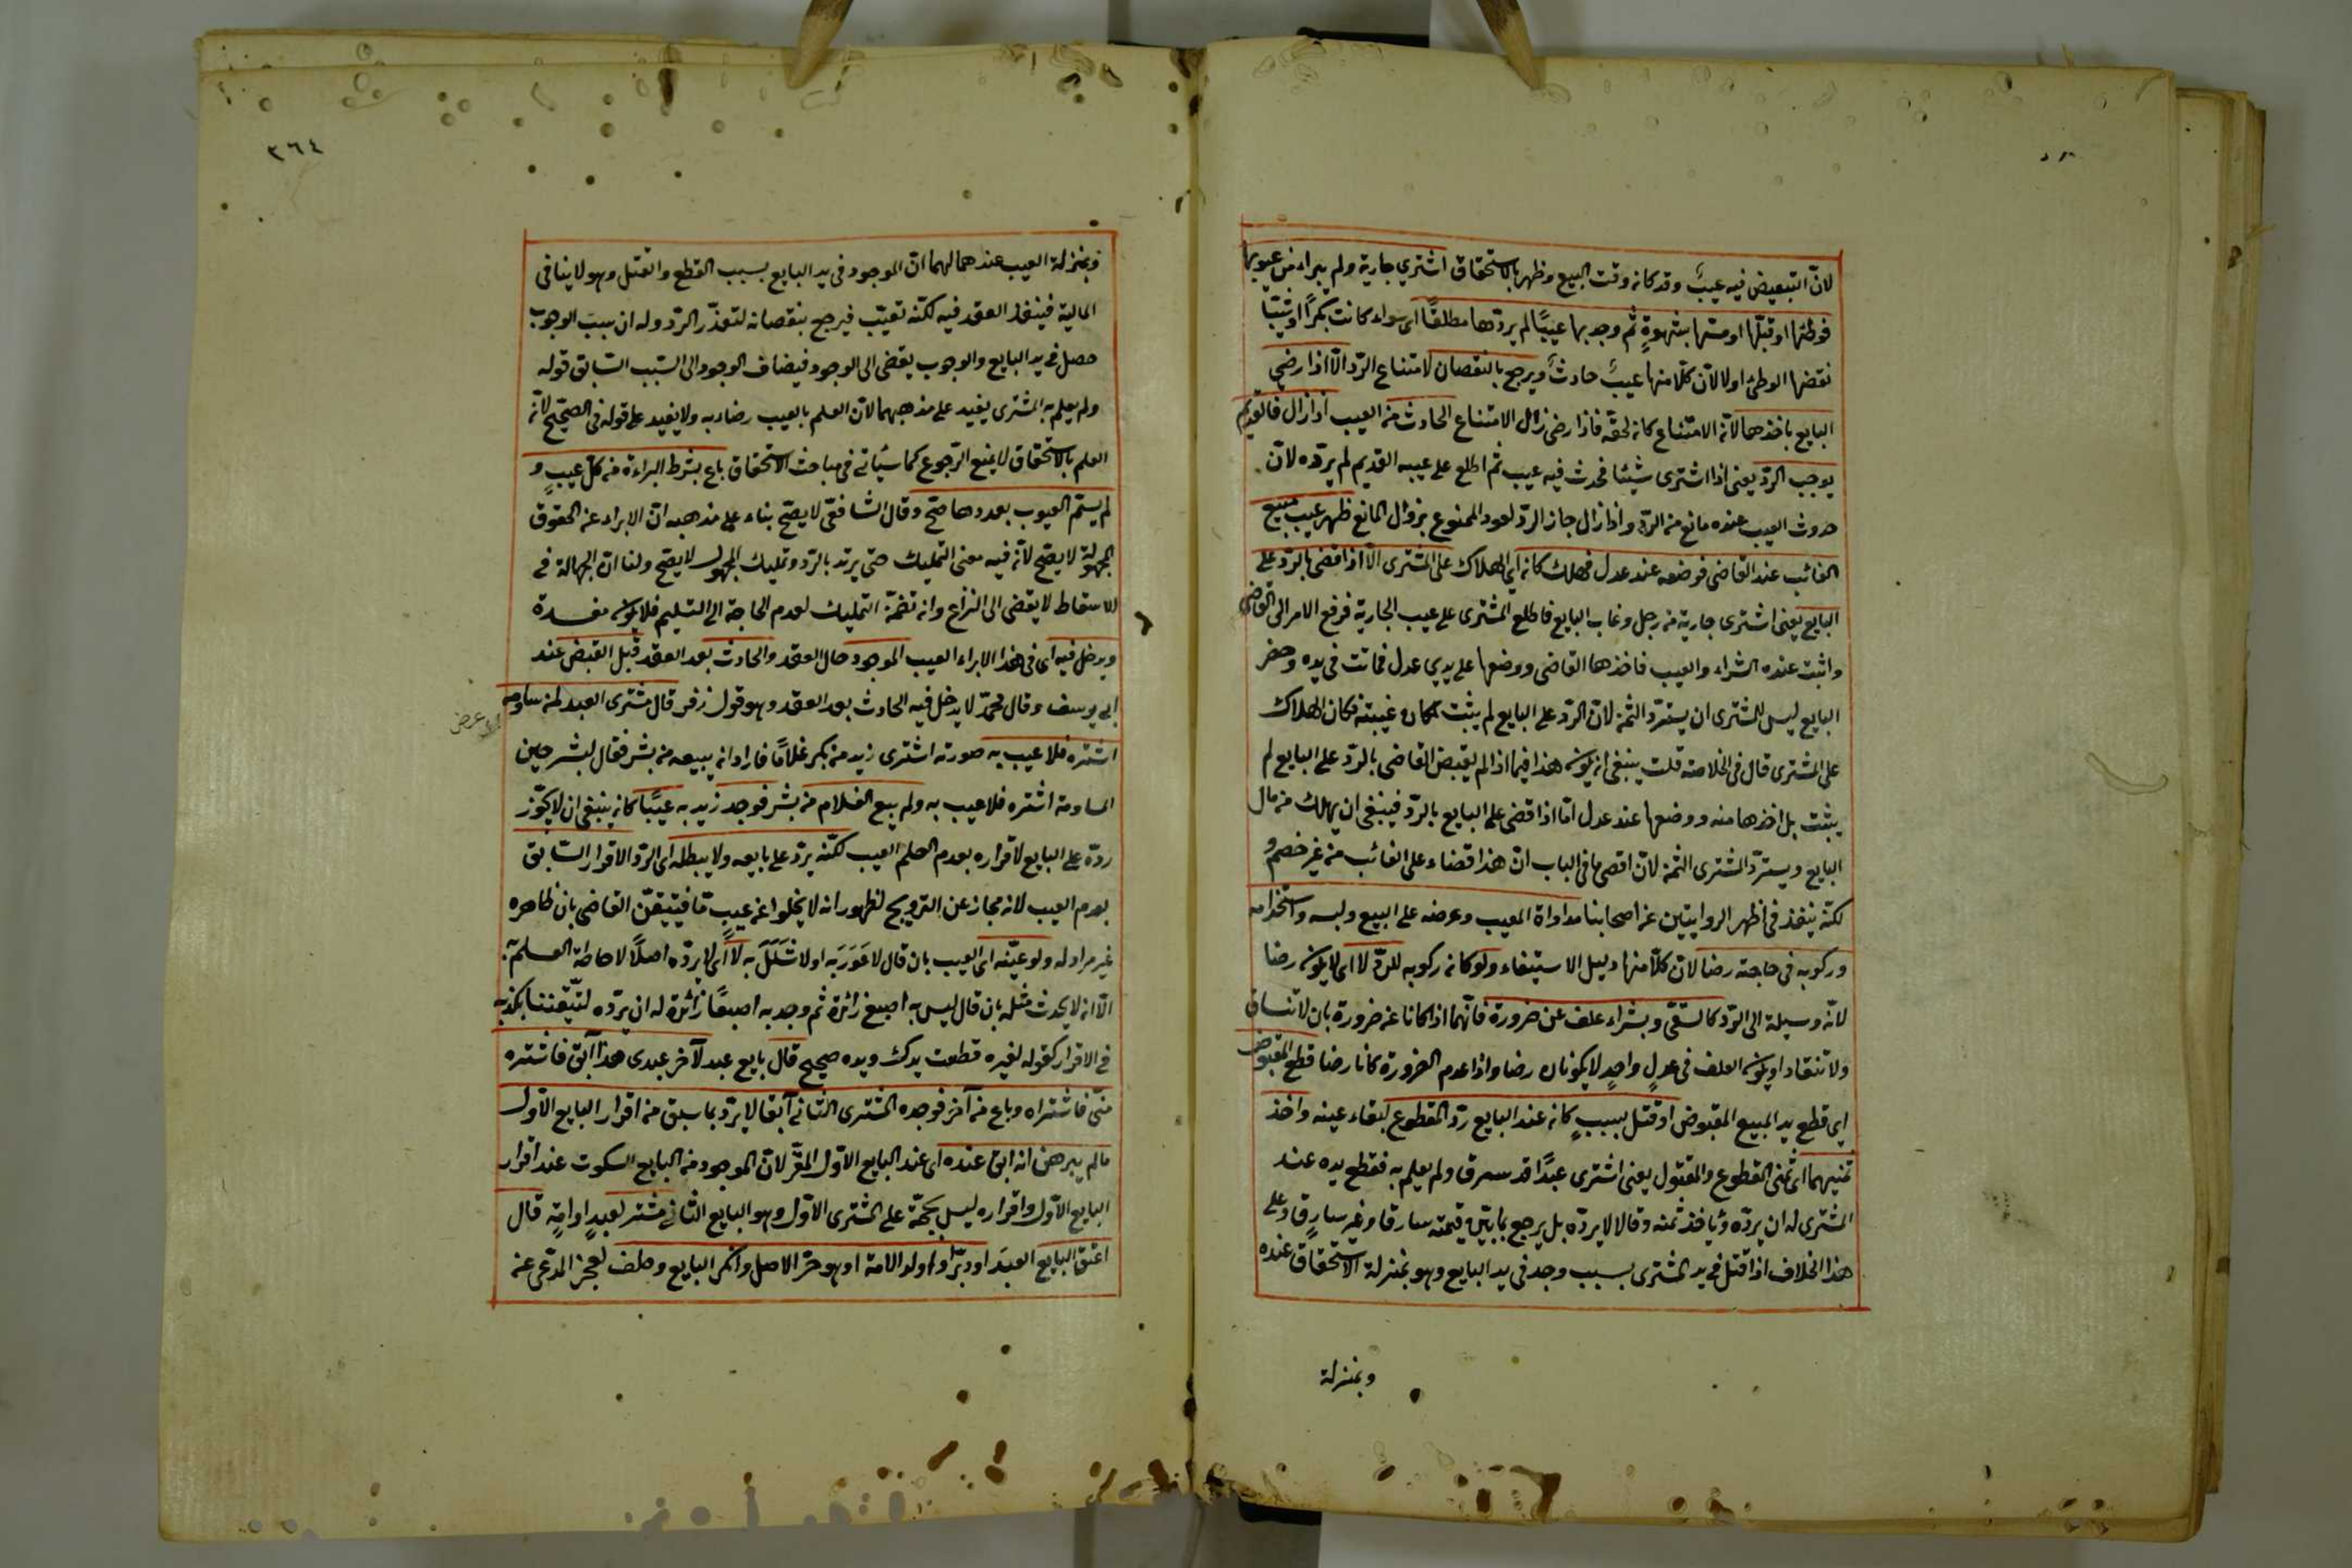 لان التبعيض فيه عيب وقد كان وقت البيع وظهر بالاستحقاق اشترى جارية ولم يبراء من عيوبها
فوطئها او قبلها او مسها بشهوة ثم وجد بها عيبا لم يردها مطلقا اى سواء كانت بكرا او ثيبا
نقصها الوطئ او لا لان كلا منها عيب حادث ويرجع بالنقصان لامتناع الرد الا اذا رضى
البايع باخذها لان الامتناع كان لحقه فاذا رضى زال الامتناع الحادث من العيب اذا زال فالقديم
يوجب الرد يعنى اذا اشترى شيئا فحدث فيه عيب ثم اطلع على عيبه القديم لم يرده لان
حدوث العيب عنده مانع من الرد واذا زال جاز الرد لعود الممنوع بزوال المانع ظهر عيب مبيع
الغائب عند القاضى فوضعه عند عدل فهلك كان اى الهلاك على المشترى الا اذا قضى بالرد على
البايع يعنى اشترى جارية من رجل وغاب البايع فاطلع المشترى على عيب الجارية فرفع الامر الى القاضى
واثبت عنده الشراء والعيب فاخذها القاضى ووضعها على يدى عدل فماتت فى يده وحضر
البايع ليس للمشترى ان يسترد الثمن لان الرد على البايع لم يثبت لمكان غيبته فكان الهلاك
على المشترى قال فى الخلاصة قلت ينبغى ان يكون هذا فيما اذا لم يقبض القاضى بالرد على البايع لم
يثبت بل اخذها منه ووضعها عند عدل اما اذا قضى على البايع بالرد فينبغى ان يهلك من مال
البايع ويسترد المشترى الثمن لان اقصى ما فى الباب ان هذا قضاء على الغائب من غير خصم و
لكنه ينفذ فى اظهر الروايتين عن اصحابنا مداواة المعيب وعرضه على البيع ولبسه واستخدامه
وركوبه فى حاجته رضا لان كلا منها دليل الاستبقاء ولو كان ركوبه للرد لا اى لا يكون رضا
لانه وسيلة الى الرد كالسقى وبشراء علف عن ضرورة فانهما اذا كانا عن ضرورة بان لا تنساق
ولا تنقاد او يكون العلف فى عدل واحد لا يكونان رضا واذا عدم الضرورة كانا رضا قطع المقبوض
اى قطع يد المبيع المقبوض او قتل بسبب كان عند البايع رد المقطوع لبقاء عينه واخذ
ثمنيهما اى ثمنى المقطوع والمقتول يعنى اشترى عبدا قد سرق ولم يعلم به فقطع يده عند
المشترى له ان يرده وياخذ ثمنه وقالا لا يرده بل يرجع بما بين قيمته سارقا وغير سارق وعلى
هذا الخلاف اذا قتل فى يد المشترى بسبب وجد فى يد البايع وهو بمنزلة الاستحقاق عنده
وبمنزلة
٣٦٤
وبمنزلة العيب عندهما لهما ان الموجود فى يد البايع بسبب القطع والقتل وهو لا ينافى
المالية فينفذ العقد فيه لكنه تعيب فيرجع بنقصانه لتعذر الرد وله ان سبب الوجوب
حصل فى يد البايع والوجوب يفضى الى الوجود فيضاف الوجود الى السبب السابق قوله
ولم يعلم به المشترى يفيد على مذهبهما لان العلم بالعيب رضاء به ولا يفيد على قوله فى الصحيح لان
العلم بالاستحقاق لا يمنع الرجوع كما سياتى فى مباحث الاستحقاق باع بشرط البراءة من كل عيب و
لم يسم العيوب بعددها صح وقال الشافعى لا يصح بناء على مذهبه ان الابراء عن الحقوق
المجهولة لا يصح لانه فيه معنى التمليك حتى يرتد بالرد وتمليك المجهول لا يصح ولنا ان الجهالة فى
الاسقاط لا يفضى الى النزاع وان تضمن التمليك لعدم الحاجة الى التسليم فلا يكون مفسدة
ويدخل فيه اى فى هذا الابراء العيب الموجود حال العقد والحادث بعد العقد قبل القبض عند
ابى يوسف وقال محمد لا يدخل فيه الحادث بعد العقد وهو قول زفر قال مشترى العبد لمن ساومه
اى عرض
اشتره فلا عيب به صورته اشترى زيد من بكر غلاما فاراد ان يبيعه من بشر فقال لبشر حين
المساومة اشتره فلا عيب به ولم يبع الغلام من بشر فوجد زيد به عيبا كان ينبغى ان لا يجوز
رده على البايع لاقراره بعدم العلم العيب لكنه يرد على بايعه ولا يبطله اى الرد الاقرار السابق
بعدم العيب لانه مجاز عن الترويج لظهور انه لا يخلوا عن عيب ما فيتيقن القاضى بان ظاهره
غير مراد له ولو عينه اى العيب بان قال لا عور به او لا شلل به لا اى لا يرده اصلا لاحاطة العلم به
الا ان لا يحدث مثله بان قال ليس به اصبع زائدة ثم وجد به اصبعا زائدة له ان يرده لتيقننا بكذبه
فى الاقرار كقوله لغيره قطعت يدك ويده صحيح قال بايع عبد لآخر عبدى هذا آبق فاشتره
منى فاشتراه وباع من آخر فوجده المشترى الثانى آبقا لا يرد بما سبق من اقرار البايع الاول
ما لم يبرهن انه ابق عنده اى عند البايع الاول المقر لان الموجود من البايع السكوت عند اقرار
البايع الاول واقراره ليس بحجة على المشترى الاول وهو البايع الثانى مشتر لعبد او امة قال
اعتق البايع العبد او دبر او اولد الامة او هو حر الاصل وانكر البايع وحلف لعجز المدعى عن